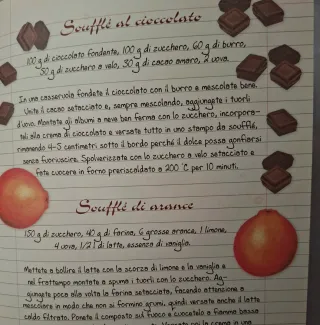 Soufflé al cioccolato
100 g di cioccolato fondente, 100 g di zucchero, 60 g di burro,
50 g di zucchero a velo, 30 g di cacao amaro, 2 uova.
In una casseruola fondete il cioccolato con il burro e mescolate bene.
Unite il cacao setacciato e, sempre mescolando, aggiungete i tuorli
d'uovo. Montate gli albumi a neve ben ferma con lo zucchero, incorpora-
teli alla crema di cioccolato e versate tutto in uno stampo da soufflé,
rimanendo 4-5 centimetri sotto il bordo perché il dolce possa gonfiarsi
senza fuoriuscire. Spolverizzate con lo zucchero a velo setacciato e
fate cuocere in forno preriscaldato a 200 °C per 10 minuti.
Soufflé di arance
150 g di zucchero, 40 g di farina, 6 grosse arance, 1 limone,
4 uova, 1/2 l di latte, essenza di vaniglia.
Mettete a bollire il latte con la scorza di limone e la vaniglia e
nel frattempo montate a spuma i tuorli con lo zucchero. Ag-
giungete poco alla volta la farina setacciata, facendo attenzione a
mescolare in modo che non si formino grumi, quindi versate anche il latte
caldo filtrato. Ponete il composto sul fuoco e cuocetelo a fiamma bassa